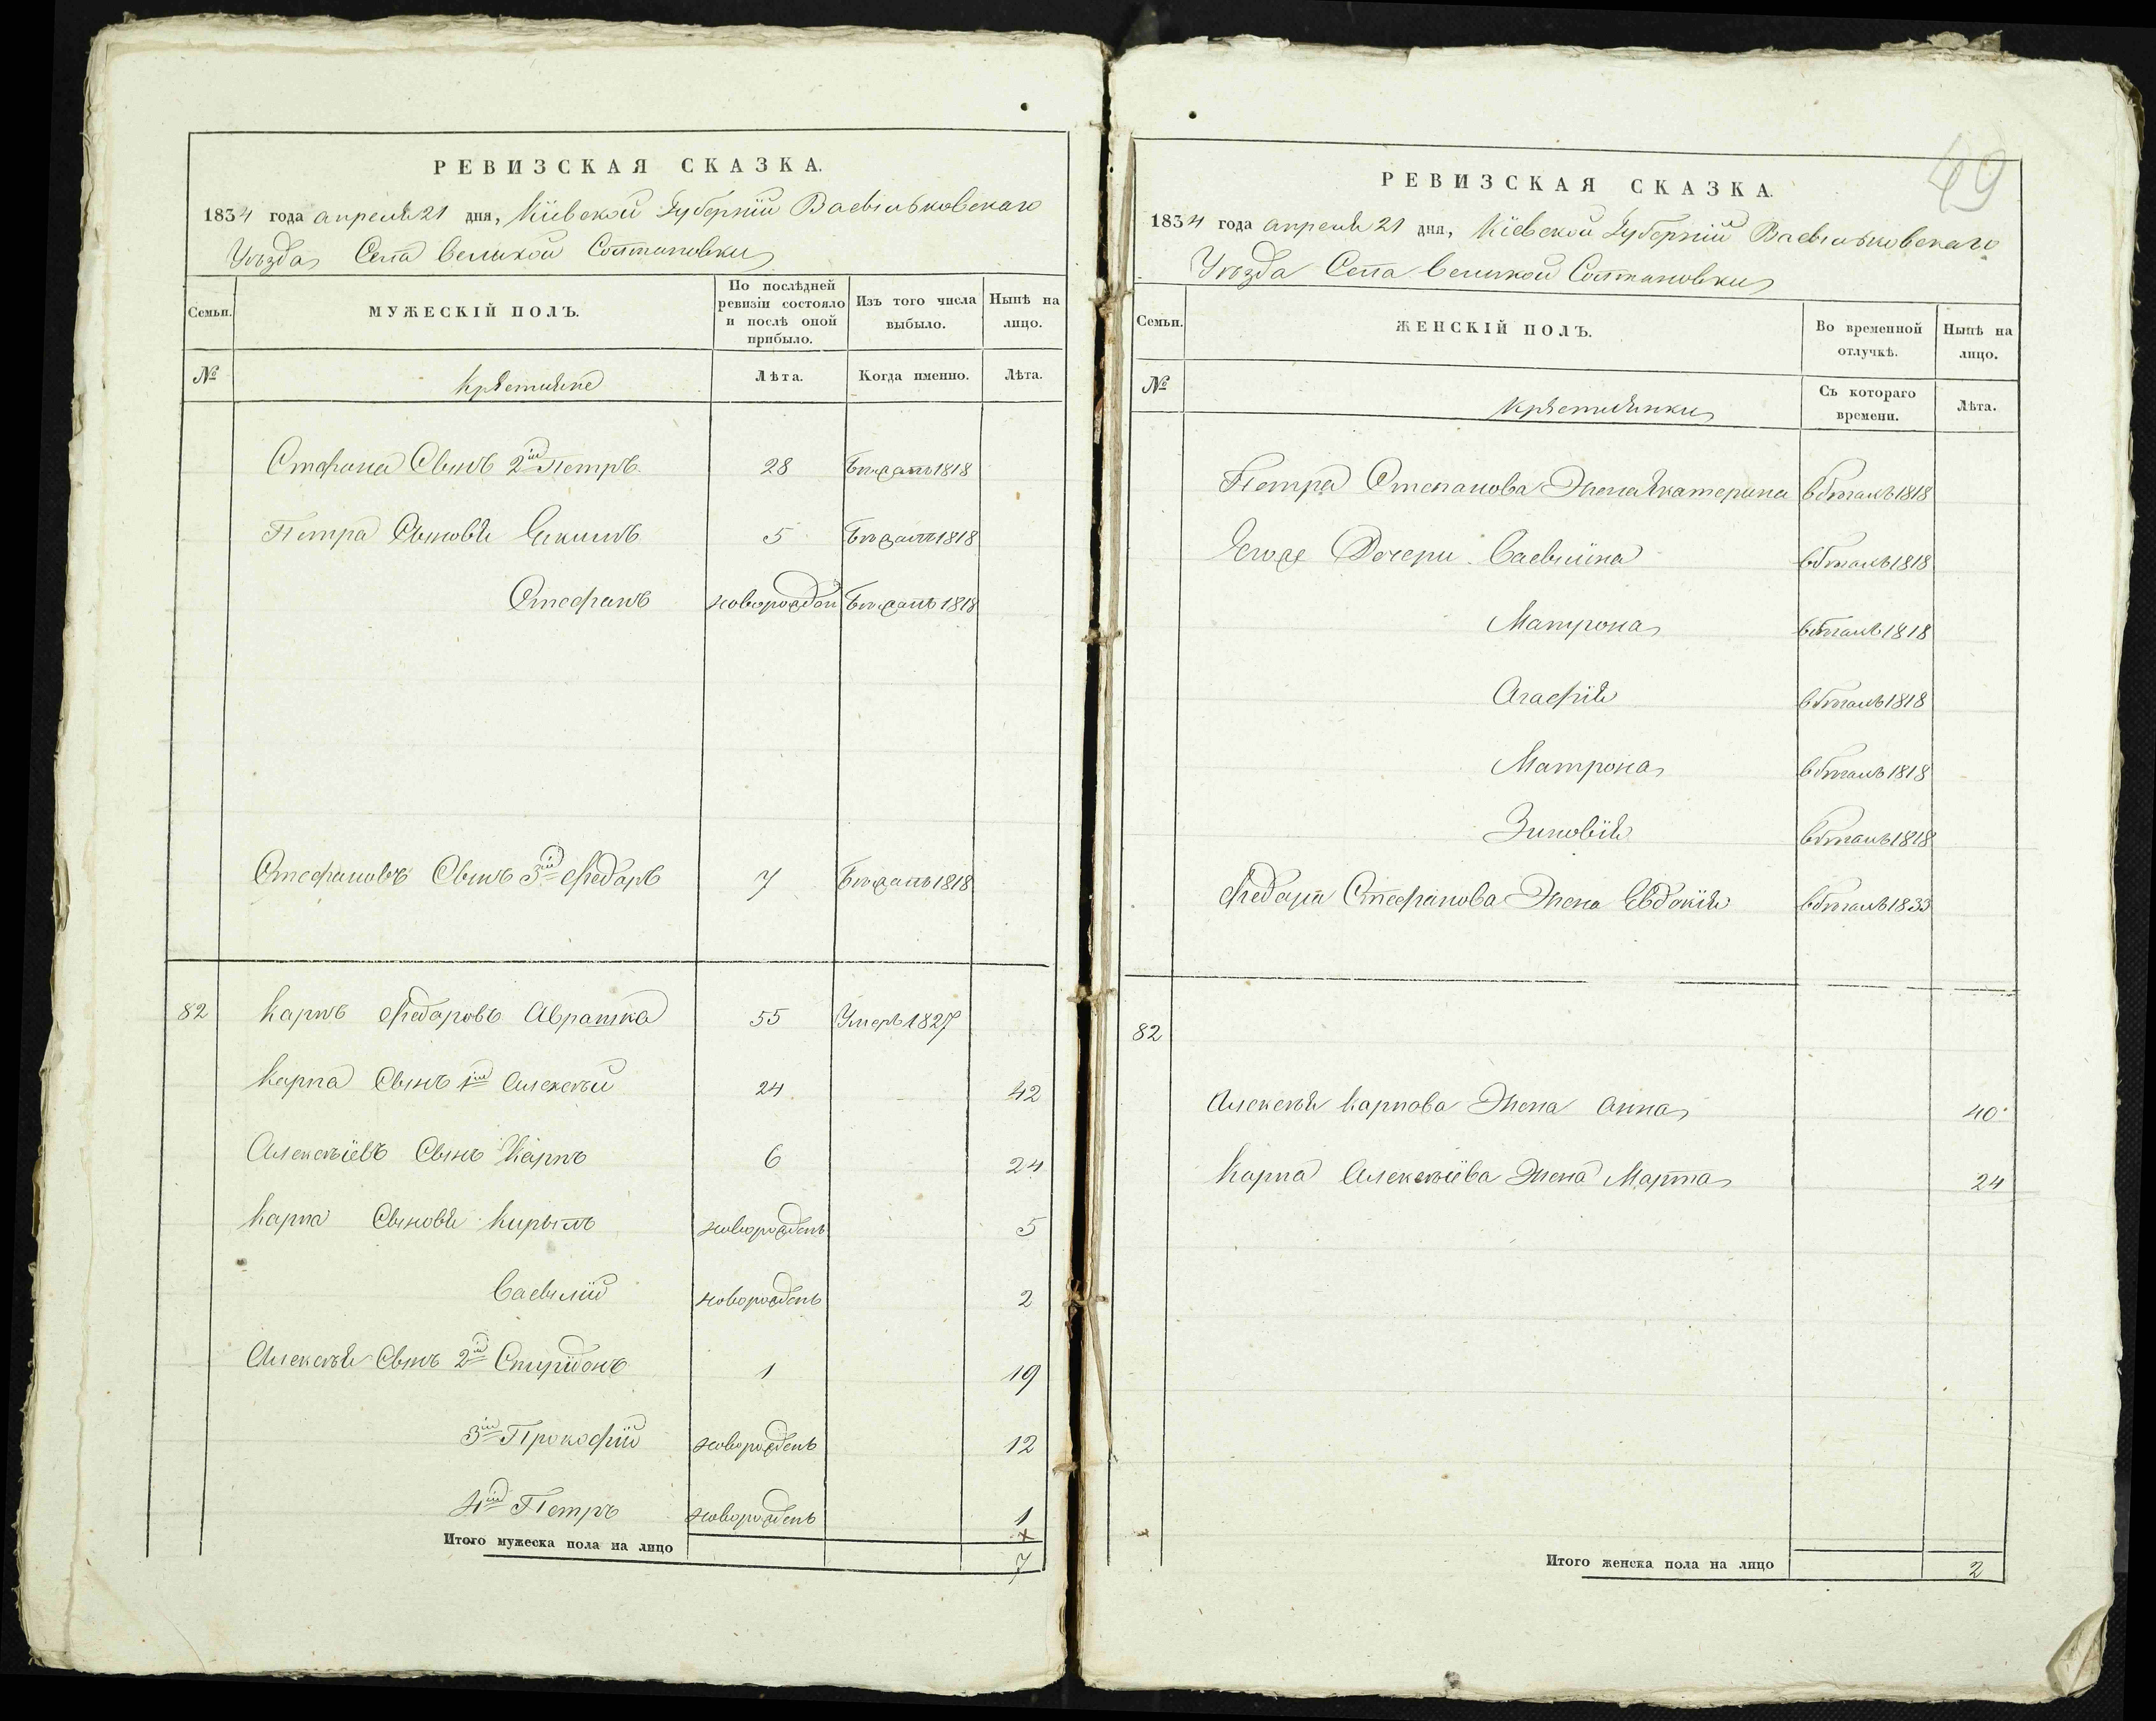 РЕВИЗСКАЯ СКАЗКА.
1834 года апреля 21 дня, Кіевской Губерніи Васильковскаго
Уѣзда Села Великой Солтановки
Семьи. МУЖЕСКІЙ ПОЛЪ. По послѣдней ревизіи состояло и послѣ оной прибыло. Изъ того числа выбыло. Нынѣ на лицо.
№ Крѣстьяне Лѣта. Когда именно. Лѣта.
Стефана Сынъ 2й Петръ 28 Бѣжалъ 1818
Петра Сыновя Екимъ 5 Бѣжалъ 1818
Стефанъ новорожден Бѣжалъ 1818
Стефановъ Сынъ 3й Федоръ 7 Бѣжалъ 1818
82 Карпъ Федоровъ 55 Умеръ 1827
Карпа Сынъ 1й Алексѣй 24 42
Алексѣіевъ Сынъ Карпъ 6 24
Карпа Сыновя Кирылъ новорожденъ 5
Васылій новорожденъ 2
Алексѣя Сынъ 2й Спиридонъ 1 19
3й Прокофій новорожденъ 12
4й Петръ новорожденъ 1
Итого мужеска пола на лицо 7
49
РЕВИЗСКАЯ СКАЗКА.
1834 года апреля 21 дня, Кіевской Губерніи Васильковскаго
Уѣзда Села Великой Солтановки
Семьи. ЖЕНСКІЙ ПОЛЪ. Во временной отлучкѣ. Нынѣ на лицо.
№ Крѣстьянки Съ котораго времени. Лѣта.
Петра Степанова Жена Екатерина вбѣгахъ 1818
Егоже Дочери Васылина вбѣгахъ 1818
Матрона вбѣгахъ 1818
Агафія вбѣгахъ 1818
Матрона вбѣгахъ 1818
Зиновія вбѣгахъ 1818
Федора Стефанова Жена Евдокія вбѣгахъ 1833
82
Алексѣя Карпова Жена Анна 40
Карпа Алексѣіева Жена Марта 24
Итого женска пола на лицо 2